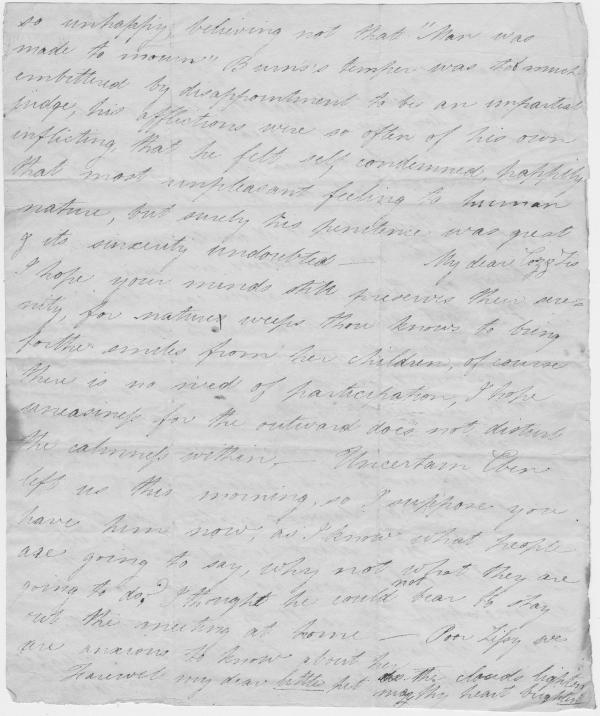 so unhappy, believing not that "Man was
made to mourn" Burns's temper was too much
embittered by disappointment to be an impartial
judge, his afflictions were so often of his own
inflicting, that he felt self condemned, happily
that most unpleasant feeling to human
nature, but surely his penitence was great
& its sincerity undoubted — My dear
I hope your minds still preserves their sere=
nity, for nature weeps thou knows to bring
forthe smiles from her children, of course
there is no need of participation, I hope
uneasiness for the outward does not disturb
the calmness within, — Uncertain Eben
left us this morning, so I suppose you
have him now, as I know what people
are going to say, why not what they are
going to do? I thought he could not bear to stay
out the meeting at home — Poor we
are anxious to know about
Farewel my dear little pet the clouds lighten
may thy heart brighten